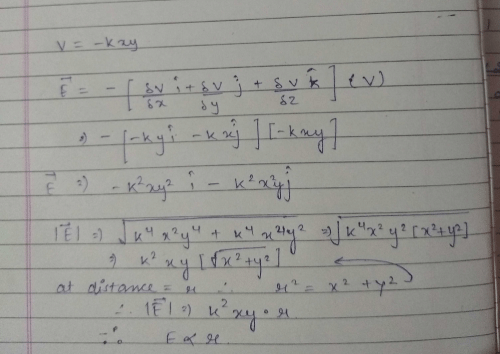 V = -kxy
E⃗ = - [ δV/δx î + δV/δy ĵ + δV/δz k̂ ] (V)
⇒ - [ -ky î - kx ĵ ] [-kxy]
E⃗ ⇒ -k²xy² î - k²x²y ĵ
|E⃗| ⇒ √(k⁴x²y⁴ + k⁴x⁴y²) ⇒ √(k⁴x²y² [x²+y²])
⇒ k²xy [√(x²+y²)]
at distance = r ∴ r² = x² + y²
∴ |E⃗| ⇒ k²xy·r
∴ E ∝ r.